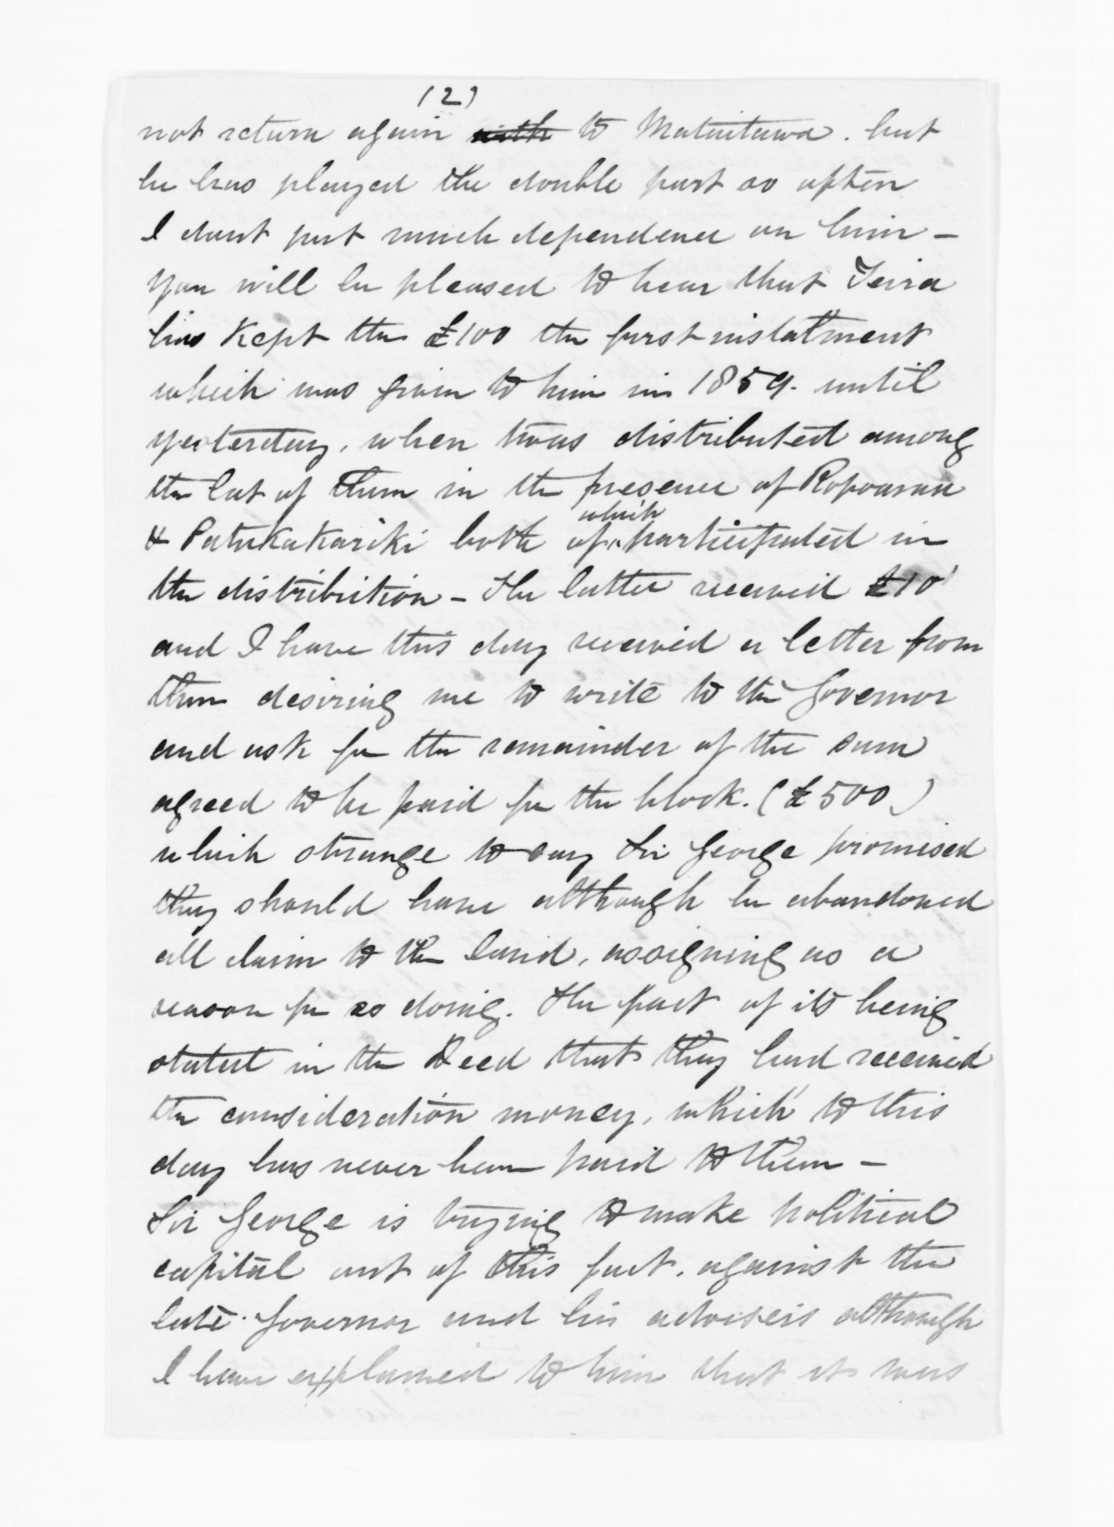 (2)
not return again with to Mataitawa. but
he has played the double part so often
I dont put much dependence on him -
You will be pleased to hear that Teira
has kept the £100 the first instalment
which was given to him in 1859. until
yesterday, when twas distributed among
the lot of them in the presence of Ropoama
& Patukakariki both of which participated in
the distribution - the latter received £10
and I have this day received a letter from
them desiring me to write to the Governor
and ask for the remainder of the sum
agreed to be paid for the block. (£500)
which strange to say Sir George promised
they should have although he abandoned
all claim to the land, assigning as a
reason for so doing. the fact of its being
stated in the Deed that they had received
the consideration money, which to this
day has never been paid to them -
Sir George is trying to make political
capital out of this fact. against the
late Governor and his advisers although
I have explained to him that it was